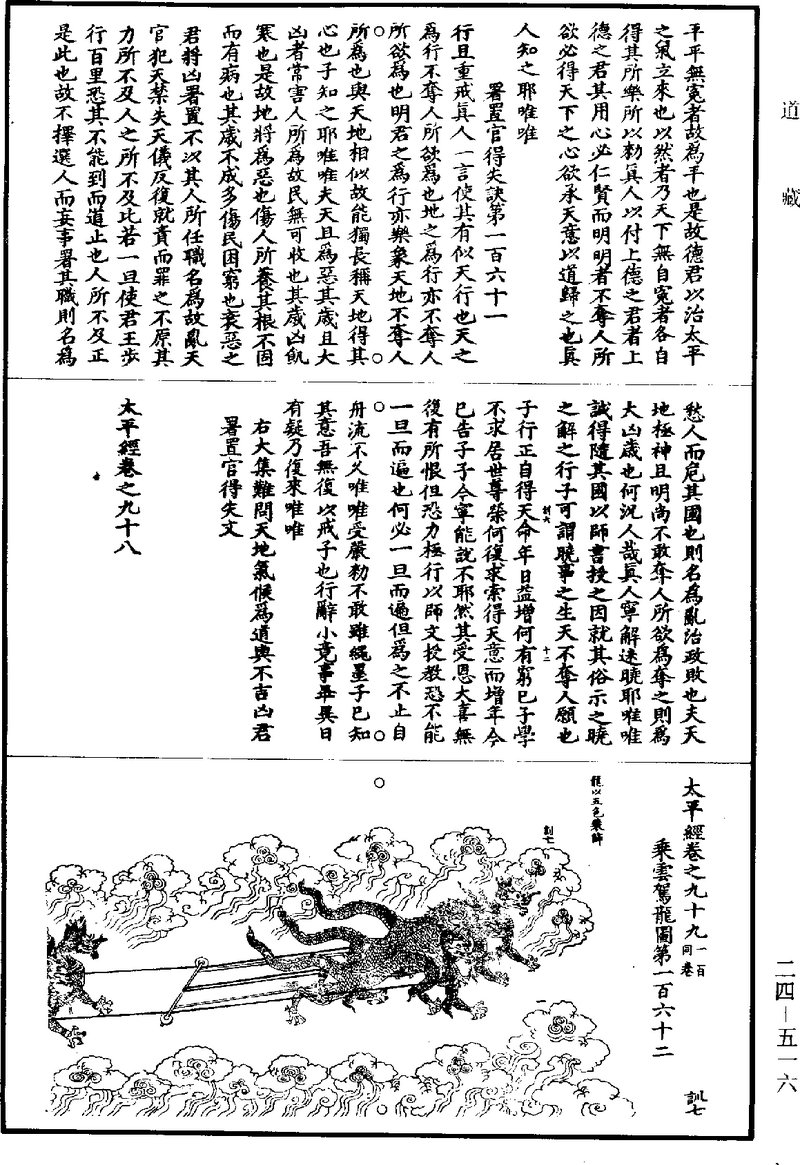 道藏
平平無冤者故為平也是故德君以治太平
之氣立來也以然者乃天下無自冤者各自
得其所樂所以勑真人以付上德之君者上
德之君其用心必仁賢而明明者不奪人所
欲必得天下之心欲承天意以道歸之也真
人知之耶唯唯
署置官得失訣第一百六十一
行且重戒真人一言使其有似天行也天之
為行不奪人所欲為也地之為行亦不奪人
所欲為也明君之為行亦樂象天地不奪人
所為也與天地相似故能獨長稱天地得其
心也子知之耶唯唯夫天且為惡其歲且大
凶者常害人所為故民無可收也其歲凶飢
寒也是故地將為惡也傷人所養其根不固
而有病也其歲不成多傷民困窮也衰惡之
君將凶署置不以其人所任職名為故亂天
官犯天禁失天儀反復就責而罪之不原其
力所不及人之所不及比若一旦使君王步
行百里恐其不能到而道止也人所不及正
是此也故不擇選人而妄事署其職則名為
愁人而危其國也則名為亂治政敗也夫天
地極神且明尚不敢奪人所欲為奪之則為
大凶歲也何況人哉真人寧解迷曉耶唯唯
誠得隨其國以師書授之因就其俗示之曉
之解之行子可謂曉事之生天不奪人願也
訓六
十二
子行正自得天命年日益增何有窮已子學
不求居世尊榮何復求索得天意而增年今
已告子子今寧能說不耶然其受恩大喜無
復有所恨但恐力極行以師文授教恐不能
一旦而遍也何必一旦而遍但為之不止自
舟流不久唯唯受嚴勑不敢雖繩墨子已知
其意吾無復以戒子也行辭小竟事畢異日
有疑乃復來唯唯
右大集難問天地氣候為道與不吉凶君
署置官得失文
太平經卷之九十八
太平經卷之九十九 一百同卷
乘雲駕龍圖第一百六十二
龍以五色裝飾
訓七
二四—五一六
訓七